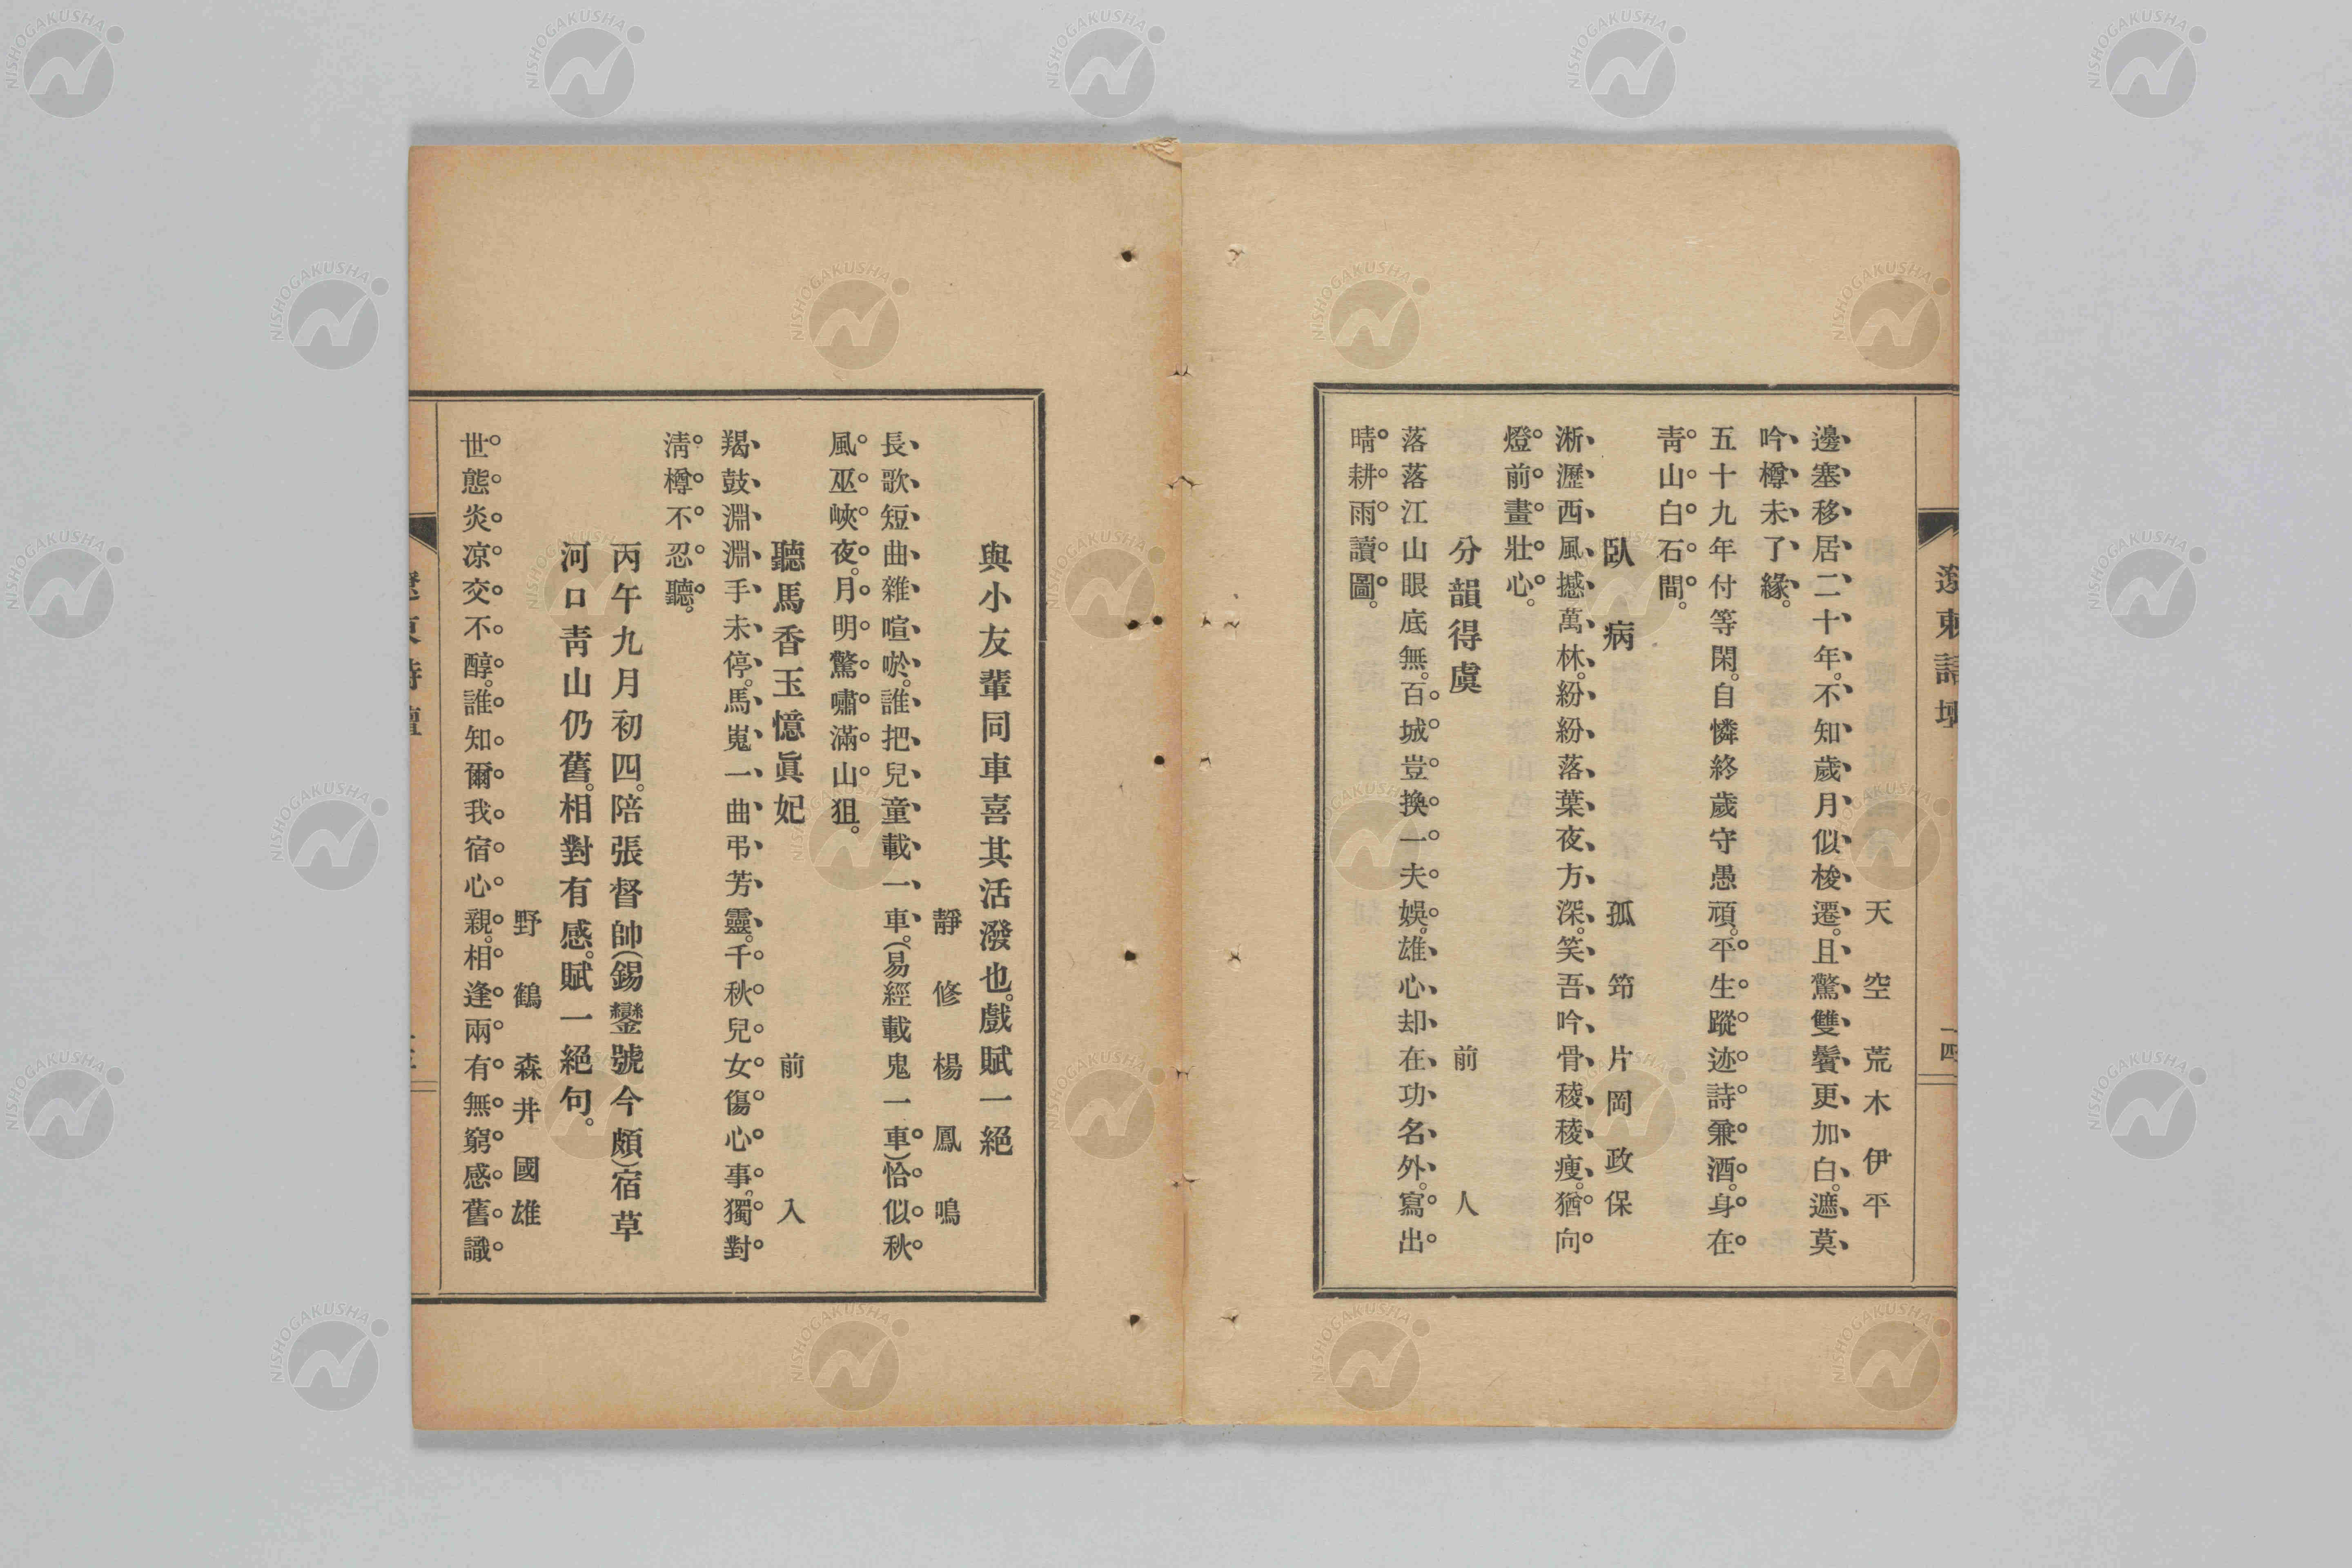 天空 荒木伊平
邊塞移居二十年。不知歲月似梭遷。且驚雙鬢更加白。遮莫
吟樽未了緣。
五十九年付等閑。自憐終歲守愚頑。平生蹤迹詩兼酒。身在
靑山白石間。
臥病 孤筇 片岡政保
淅瀝西風撼萬林。紛紛落葉夜方深。笑吾吟骨稜稜瘦。猶向
燈前畫壯心。
分韻得虞 前人
落落江山眼底無。百城豈換一夫娛。雄心却在功名外。寫出
晴耕雨讀圖。
遼東詩壇
一四
與小友輩同車喜其活潑也。戲賦一絕
靜修 楊鳳鳴
長歌短曲雜喧唹。誰把兒童載一車。(易經載鬼一車)恰似秋
風巫峽夜。月明驚嘯滿山狙。
聽馬香玉憶眞妃 前入
羯鼓淵淵手未停。馬嵬一曲弔芳靈。千秋兒女傷心事。獨對
淸樽不忍聽。
丙午九月初四。陪張督帥(錫鑾號今頗)宿草
河口靑山仍舊。相對有感。賦一絕句。
野鶴 森井國雄
世態炎凉交不醇。誰知爾我宿心親。相逢兩有無窮感舊識
遼東詩壇
NISHOGAKUSHA